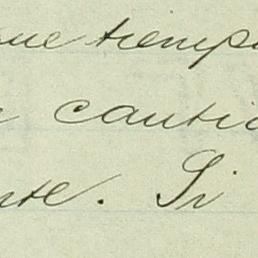 que tiempo
cantid
nte. Si